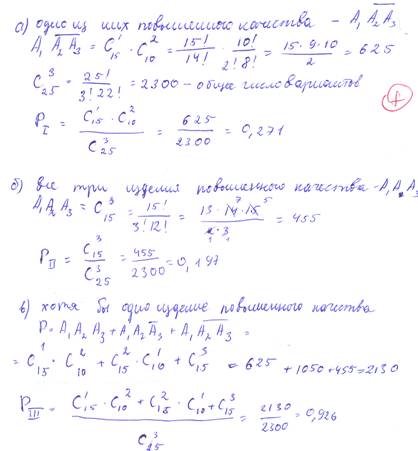 а) одно из них повышенного качества – A₁ \overline{A₂ A₃}
A₁ \overline{A₂ A₃} = C¹₁₅ · C²₁₀ = 15!/14! · 10!/2!8! = 15·9·10/2 = 625
C³₂₅ = 25!/3!22! = 2300 – общее число вариантов
P_I = C¹₁₅ · C²₁₀ / C³₂₅ = 625/2300 = 0,271
б) все три изделия повышенного качества – A₁A₂A₃
A₁A₂A₃ = C³₁₅ = 15!/3!12! = 13·14·15/2·3 = 455
7 5
1 1
P_II = C³₁₅/C³₂₅ = 455/2300 = 0,197
в) хотя бы одно изделие повышенного качества
P = A₁A₂A₃ + A₁A₂\overline{A₃} + A₁\overline{A₂A₃} =
= C¹₁₅ · C²₁₀ + C²₁₅ · C¹₁₀ + C³₁₅ = 625 + 1050 + 455 = 2130
P_III = C¹₁₅ · C²₁₀ + C²₁₅ · C¹₁₀ + C³₁₅ / C³₂₅ = 2130/2300 = 0,926